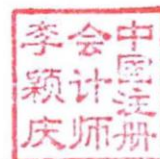 中国注册
会计师
李颖庆